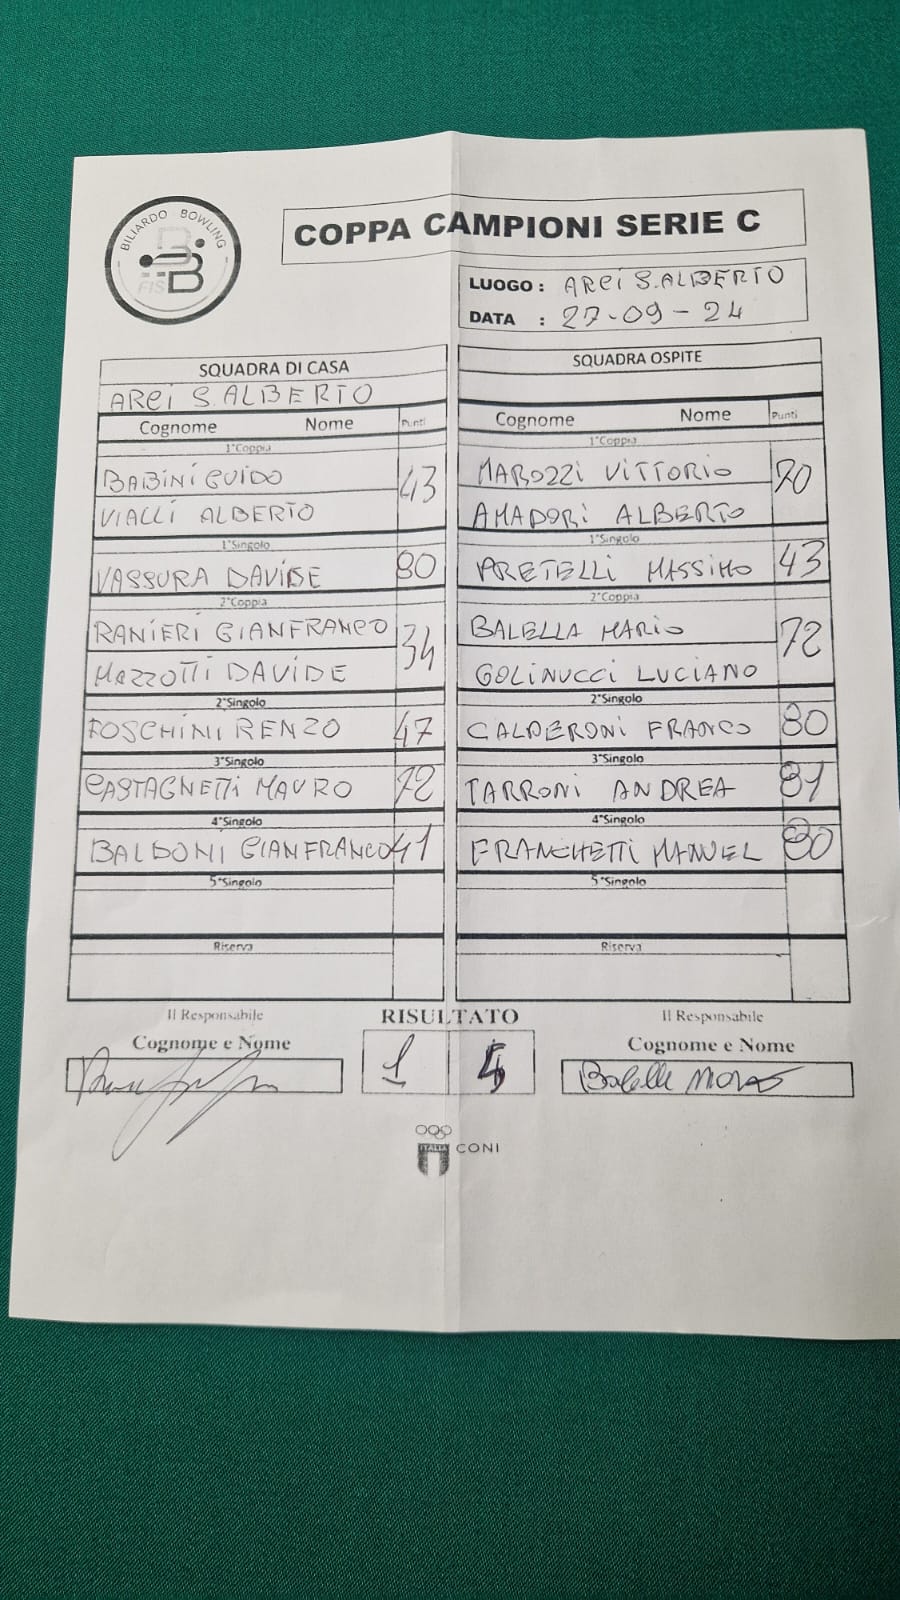 BILIARDO BOWLING
FISBB
COPPA CAMPIONI SERIE C
LUOGO : ARCI S. ALBERTO
DATA : 27-09-24
SQUADRA DI CASA
ARCI S. ALBERTO
Cognome Nome Punti
1°Coppia
BABINI GUIDO 43
VIALLI ALBERTO
1°Singolo
VASSURA DAVIDE 80
2°Coppia
RANIERI GIANFRANCO 34
MAZZOTTI DAVIDE
2°Singolo
FOSCHINI RENZO 47
3°Singolo
CASTAGNETTI MAURO 72
4°Singolo
BALDONI GIANFRANCO 41
5°Singolo
Riserva
SQUADRA OSPITE
Cognome Nome Punti
1°Coppia
MAROZZI VITTORIO 70
AMADORI ALBERTO
1°Singolo
PRETELLI MASSIMO 43
2°Coppia
BALELLA MARIO 72
GOLINUCCI LUCIANO
2°Singolo
CALDERONI FRANCO 80
3°Singolo
TARRONI ANDREA 81
4°Singolo
FRANCHETTI MANUEL 80
5°Singolo
Riserva
Il Responsabile
Cognome e Nome
RISULTATO
1 5
Il Responsabile
Cognome e Nome
Balella Mario
ITALIA
CONI